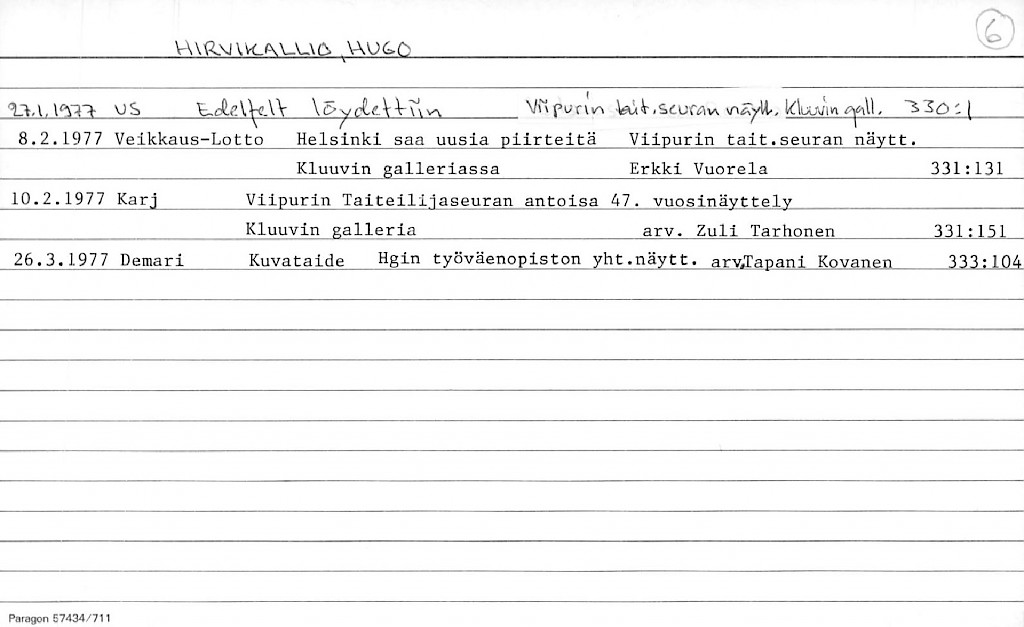 6
HIRVIKALLIO, HUGO
27.1.1977 US Edelfelt löydettiin Viipurin tait.seuran näytt. Kluuvin gall. 330:1
8.2.1977 Veikkaus-Lotto Helsinki saa uusia piirteitä Viipurin tait.seuran näytt.
Kluuvin galleriassa Erkki Vuorela 331:131
10.2.1977 Karj Viipurin Taiteilijaseuran antoisa 47. vuosinäyttely
Kluuvin galleria arv. Zuli Tarhonen 331:151
26.3.1977 Demari Kuvataide Hgin työväenopiston yht.näytt. arv.Tapani Kovanen 333:104
Paragon 57434/711